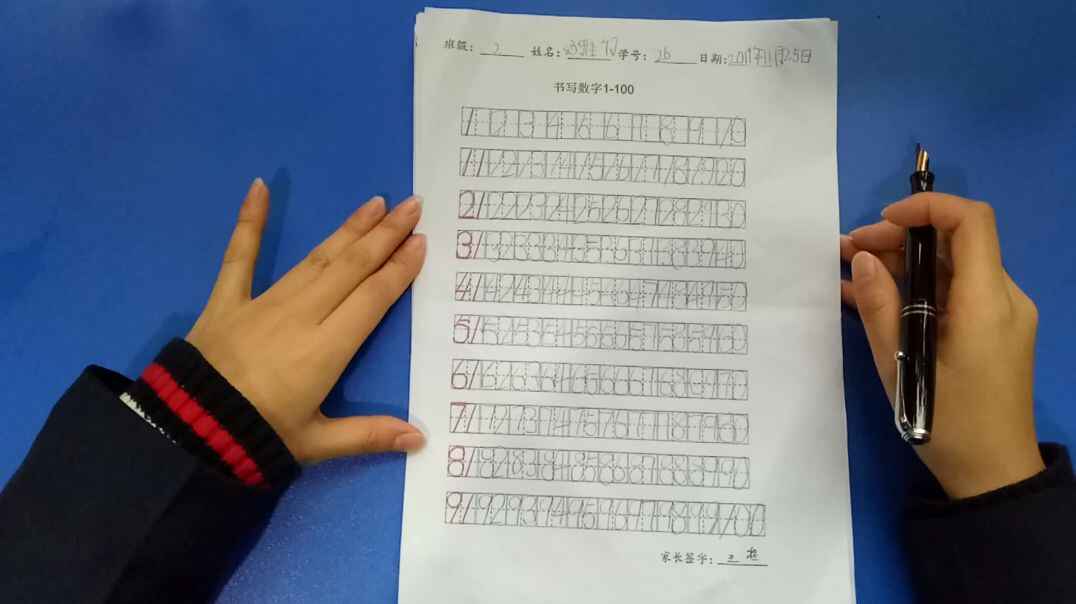 班级： 2 姓名： 学号： 26 日期：2017年11月25日
书写数字1-100
1 2 3 4 5 6 7 8 9 10
11 12 13 14 15 16 17 18 19 20
21 22 23 24 25 26 27 28 29 30
31 32 33 34 35 36 37 38 39 40
41 42 43 44 45 46 47 48 49 50
51 52 53 54 55 56 57 58 59 60
61 62 63 64 65 66 67 68 69 70
71 72 73 74 75 76 77 78 79 80
81 82 83 84 85 86 87 88 89 90
91 92 93 94 95 96 97 98 99 100
家长签字：